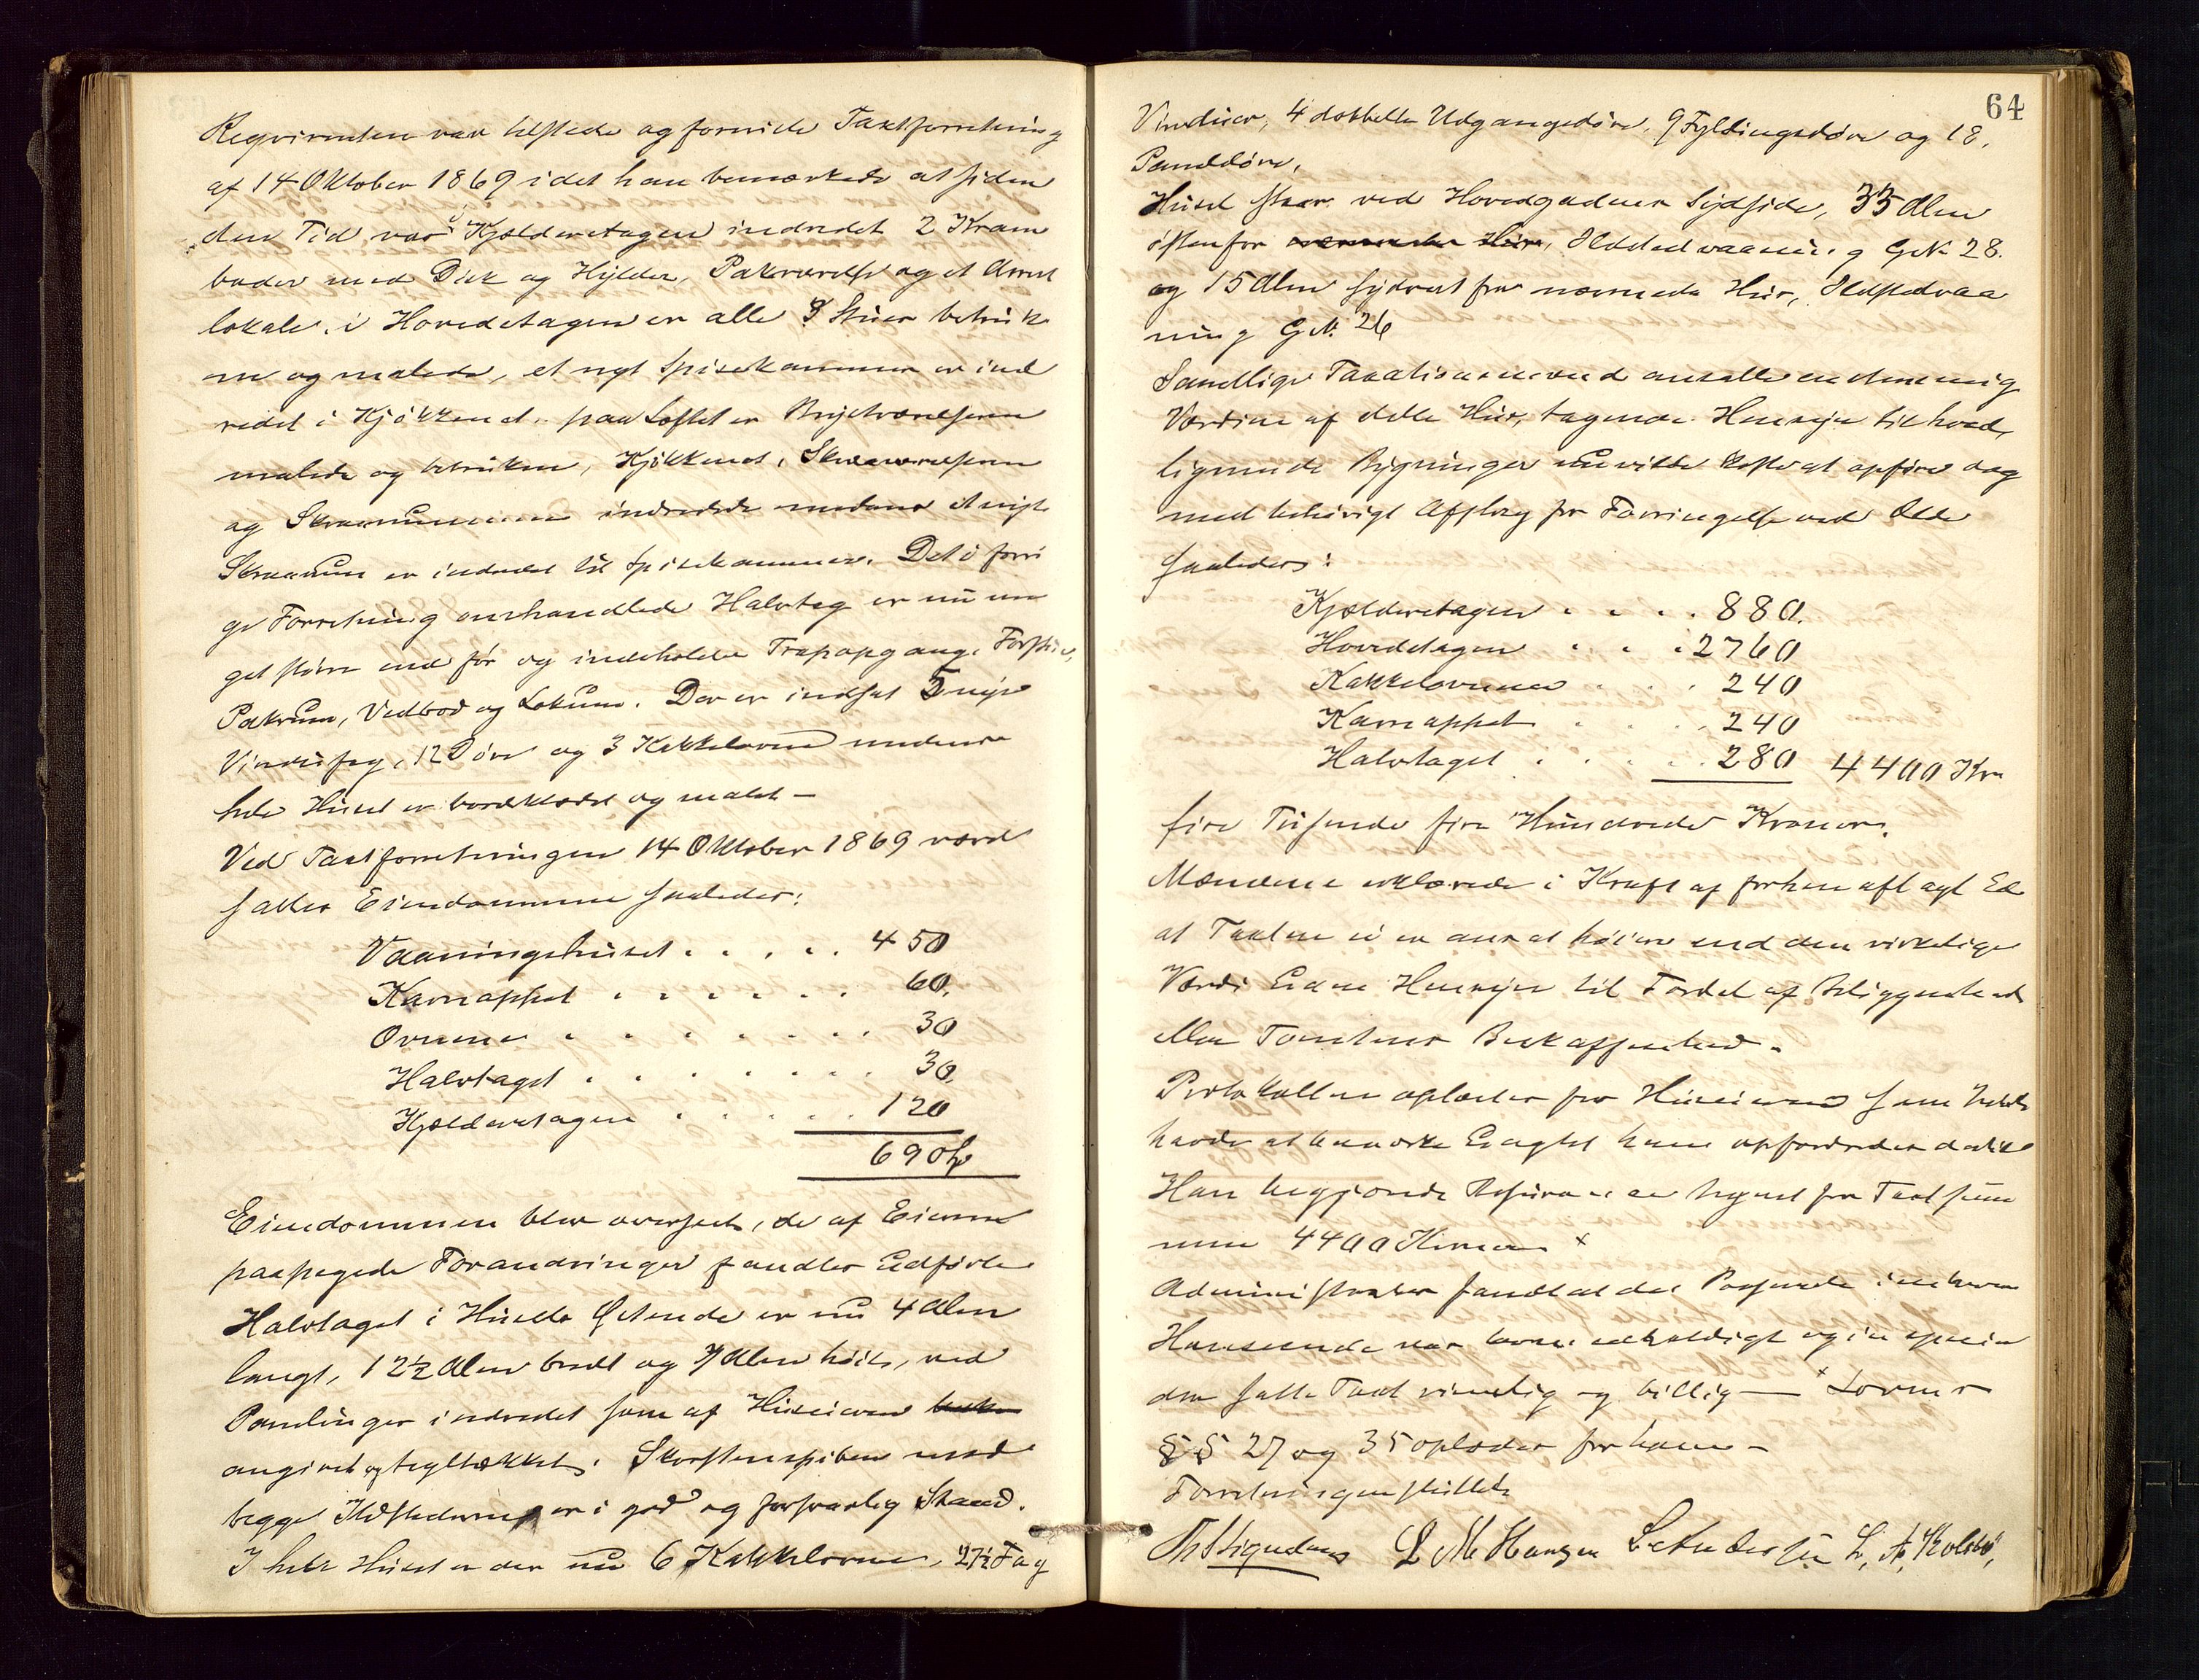 Reqvirenten var tilstede og foreviste Taxtforretning
af 14 Oktober 1869 idet han bemærkede at siden
den Tid var i Kjælderetagen indredet 2 Kram
boder med Disk og Hylder, Pakværelse og et Arrest
lokale. i Hovedetagen er alle 8 Stuer betruk
ne og malede, et nyt Spisekammer er ind
redet i Kjøkkenet. paa Loftet er Kvistværelserne
malede og betrukne, Kjøkkenet, Skraaværelserne
og Skraarummene indredede medens et nyt
Skraarum er indredet til Spisekammer. Det i forri
ge Forretning omhandlede Halvtag er nu me
get større end før og indeholder Trapopgang, Forstue,
Pakrum, Vedbod og Lokum. Der er indsat 5 nye
Vinduesfag, 12 Døre og 3 Kakkelovne medens
hele Huset er bordklædt og malet –
Ved Taxtforretningen 14 Oktober 1869 værd
sattes Eiendommene saaledes:
Vaaningshuset . . . . . 450
Karnappet . . . . . . 60.
Ovnene . . . . . . . 30
Halvtaget . . . . . . . 30.
Kjælderetagen . . . . . 120
690 Sp
Eiendommen blev overseet, de af Eieren
paapegede Forandringer fandtes udførte
Halvtaget i Husets Østende er nu 4 Alen
langt, 12½ Alen bredt og 7 Alen høit, ved
Panelinger indredet som af Huseieren
angivet og tegltækket. Skorstenspiben med
begge Ildstederne er i god og forsvarlig Stand.
I hele Huset er der nu 6 Kakkelovne, 27½ Fag
64
Vinduer, 4 dobbelte Udgangsdøre, 9 Fyldingsdøre og 18.
Paneldøre.
Huset staar ved Hovedgadens Sydside, 35 Alen
østenfor nærmeste Hus, Ildstedvaaning GN. 28.
og 15 Alen sydvest fra nærmeste Hus, Ildstedvaa
ning GN. 26
Samtlige Taxationsmænd ansatte enstemmig
Værdien af dette Hus, tagende Hensyn til hvad
lignende Bygninger nu vilde koste at opføre dog
med behørigt Afslag for Forringelse ved Ælde
saaledes:
Kjælderetagen . . . . 880.
Hovedetagen . . . 2760
Kakkelovnene . . . 240
Karnappet . . . . 240
Halvtaget . . . . 280 4400 Kr
fire Tusende fire Hundrede Kroner.
Mændene erklærede i Kraft af forhen aflagt Ed
at Taxten ei er ansat høiere end den virkelige
Værdi uden Hensyn til Fordel af Beliggenhed
eller Tomtens Beskaffenhed.
Protokollen oplæstes for Huseieren som Intet
havde at bemærke uagtet ham opfordredes dertil
Han begjærede Assurance tegnet for Taxtsum
men 4400 Kroner ×
Administrator fandt at det Passerede i enhver
Henseende var lovmedholdigt og in specie
den satte Taxt rimelig og billig — × Lovens
§ § 27 og 35 oplæstes for ham –
Forretningen sluttet
L M Hansen L Andersen L. A.